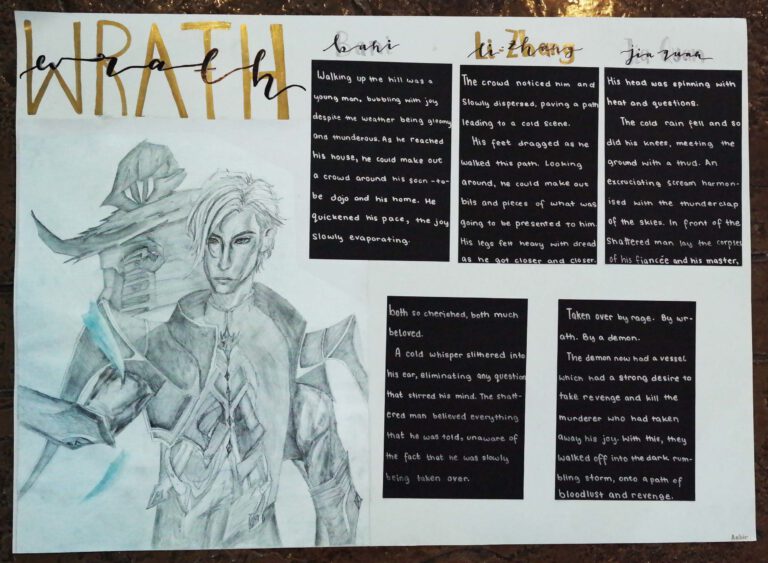 WRATH
wrath
baki
Li-Zhong
li-zhong
jin
Walking up the hill was a
young man, bubbling with joy
despite the weather being gloomy
and thunderous. As he reached
his house, he could make out
a crowd around his soon-to-
be dojo and his home. He
quickened his pace, the joy
slowly evaporating.
The crowd noticed him and
slowly dispersed, paving a path
leading to a cold scene.
His feet dragged as he
walked this path. Looking
around, he could make out
bits and pieces of what was
going to be presented to him.
His legs felt heavy with dread
as he got closer and closer.
His head was spinning with
heat and questions.
The cold rain fell and so
did his knees, meeting the
ground with a thud. An
excruciating scream harmon-
ised with the thunderclap
of the skies. In front of the
shattered man lay the corpses
of his fiancée and his master,
both so cherished, both much
beloved.
A cold whisper slithered into
his ear, eliminating any question
that stirred his mind. The shatt-
ered man believed everything
that he was told, unaware of
the fact that he was slowly
being taken over.
Taken over by rage. By wr-
ath. By a demon.
The demon now had a vessel
which had a strong desire to
take revenge and kill the
murderer who had taken
away his joy. With this, they
walked off into the dark rum-
bling storm, onto a path of
bloodlust and revenge.